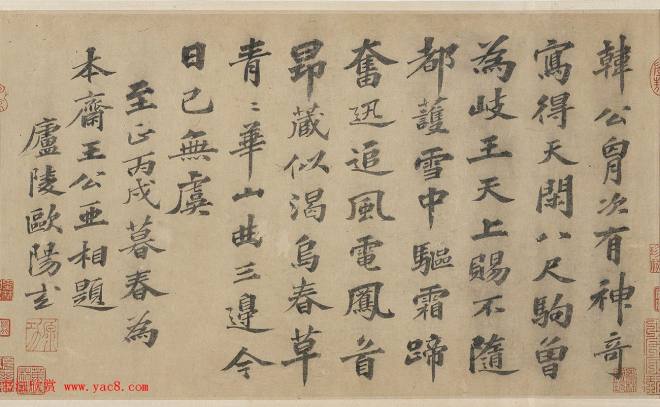 韓公胷次有神奇
寫得天閑八尺駒曾
為岐王天上賜不隨
都護雪中驅霜蹄
奮迅追風電鳳首
昂藏似渴烏春草
青〻華山曲三邊今
日已無虞
至正丙戌暮春為
本齋王公亞相題
廬陵歐陽玄
書法欣赏 www.yac8.com